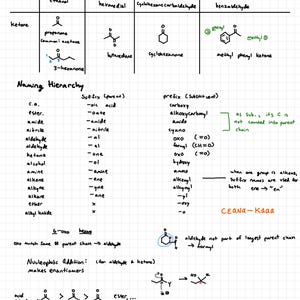 ethanal hexanedial cyclohexanecarbaldehyde benzaldehyde
ketone
propanone
common: acetone
3-hexanone
butanedione
cyclohexanone
methyl phenyl ketone
Naming Hierarchy
suffix (parent) prefix (substituent)
c.a. -oic acid carboxy
ester -oate alkoxycarbonyl
amide -amide amido
nitrile -nitrile cyano
aldehyde -al oxo (=O)
aldehyde -al formyl (CH=O)
ketone -one oxo (=O)
alcohol -ol hydroxy
amine -amine amino
alkene -ene alkenyl
alkyne -yne alkynyl
alkane -ane -yl
ether x -oxy
alkyl halide x -o
as sub., it's C is
not counted into parent
chain
when are group is alkene,
suffix names are used for
both: ene → "en"
CEANA-KAAA
6-oxo
one much same as parent chain → aldehyde
aldehyde not part of largest parent chain
→ formyl
Nucleophilic Addition: (for aldehyde & ketone)
makes enantiomers
and > > > ester,...